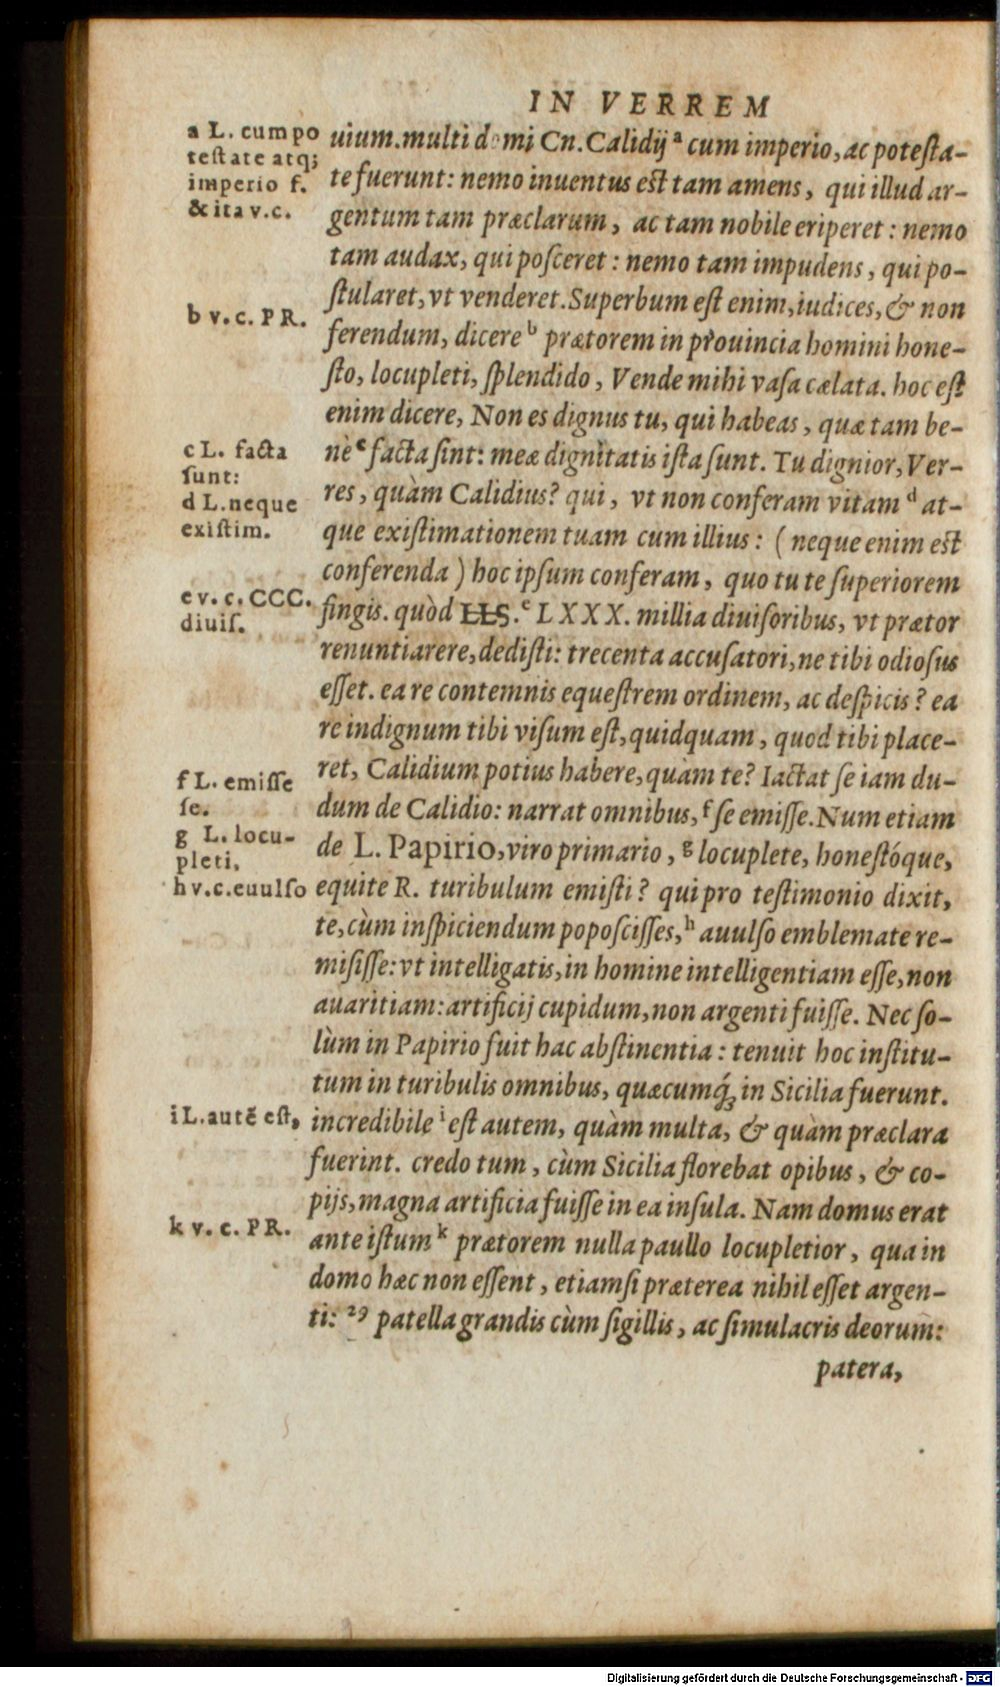 IN VERREM
a L. cum po
testate atq;
imperio f.
& ita v.c.
b v.c. PR.
c L. facta
sunt:
d L. neque
existim.
e v. c. CCC.
diuis.
f L. emisse
se.
g L. locu-
pleti,
h v.c. euulso
i L. autē est,
k v. c. PR.
uium. multi domi Cn. Calidij ᵃ cum imperio, ac potesta-
te fuerunt: nemo inuentus est tam amens, qui illud ar-
gentum tam præclarum, ac tam nobile eriperet: nemo
tam audax, qui posceret: nemo tam impudens, qui po-
stularet, vt venderet. Superbum est enim, iudices, & non
ferendum, dicere ᵇ prætorem in prouincia homini hone-
sto, locupleti, splendido, Vende mihi vasa cælata. hoc est
enim dicere, Non es dignus tu, qui habeas, quæ tam be-
nè ᶜ facta sint: meæ dignitatis ista sunt. Tu dignior, Ver-
res, quàm Calidius? qui, vt non conferam vitam ᵈ at-
que existimationem tuam cum illius: (neque enim est
conferenda) hoc ipsum conferam, quo tu te superiorem
fingis. quòd LLS. ᵉ LXXX. millia diuisoribus, vt prætor
renuntiarere, dedisti: trecenta accusatori, ne tibi odiosus
esset. ea re contemnis equestrem ordinem, ac despicis? ea
re indignum tibi visum est, quidquam, quod tibi place-
ret, Calidium potius habere, quàm te? Iactat se iam du-
dum de Calidio: narrat omnibus, ᶠ se emisse. Num etiam
de L. Papirio, viro primario, ᵍ locuplete, honestóque,
equite R. turibulum emisti? qui pro testimonio dixit,
te, cùm inspiciendum poposcisses, ʰ auulso emblemate re-
misisse: vt intelligatis, in homine intelligentiam esse, non
auaritiam: artificij cupidum, non argenti fuisse. Nec so-
lùm in Papirio fuit hac abstinentia: tenuit hoc institu-
tum in turibulis omnibus, quæcumq́; in Sicilia fuerunt.
incredibile ⁱ est autem, quàm multa, & quàm præclara
fuerint. credo tum, cùm Sicilia florebat opibus, & co-
pijs, magna artificia fuisse in ea insula. Nam domus erat
ante istum ᵏ prætorem nulla paullo locupletior, qua in
domo hæc non essent, etiamsi præterea nihil esset argen-
ti: ²⁹ patella grandis cùm sigillis, ac simulacris deorum:
patera,
Digitalisierung gefördert durch die Deutsche Forschungsgemeinschaft - DFG